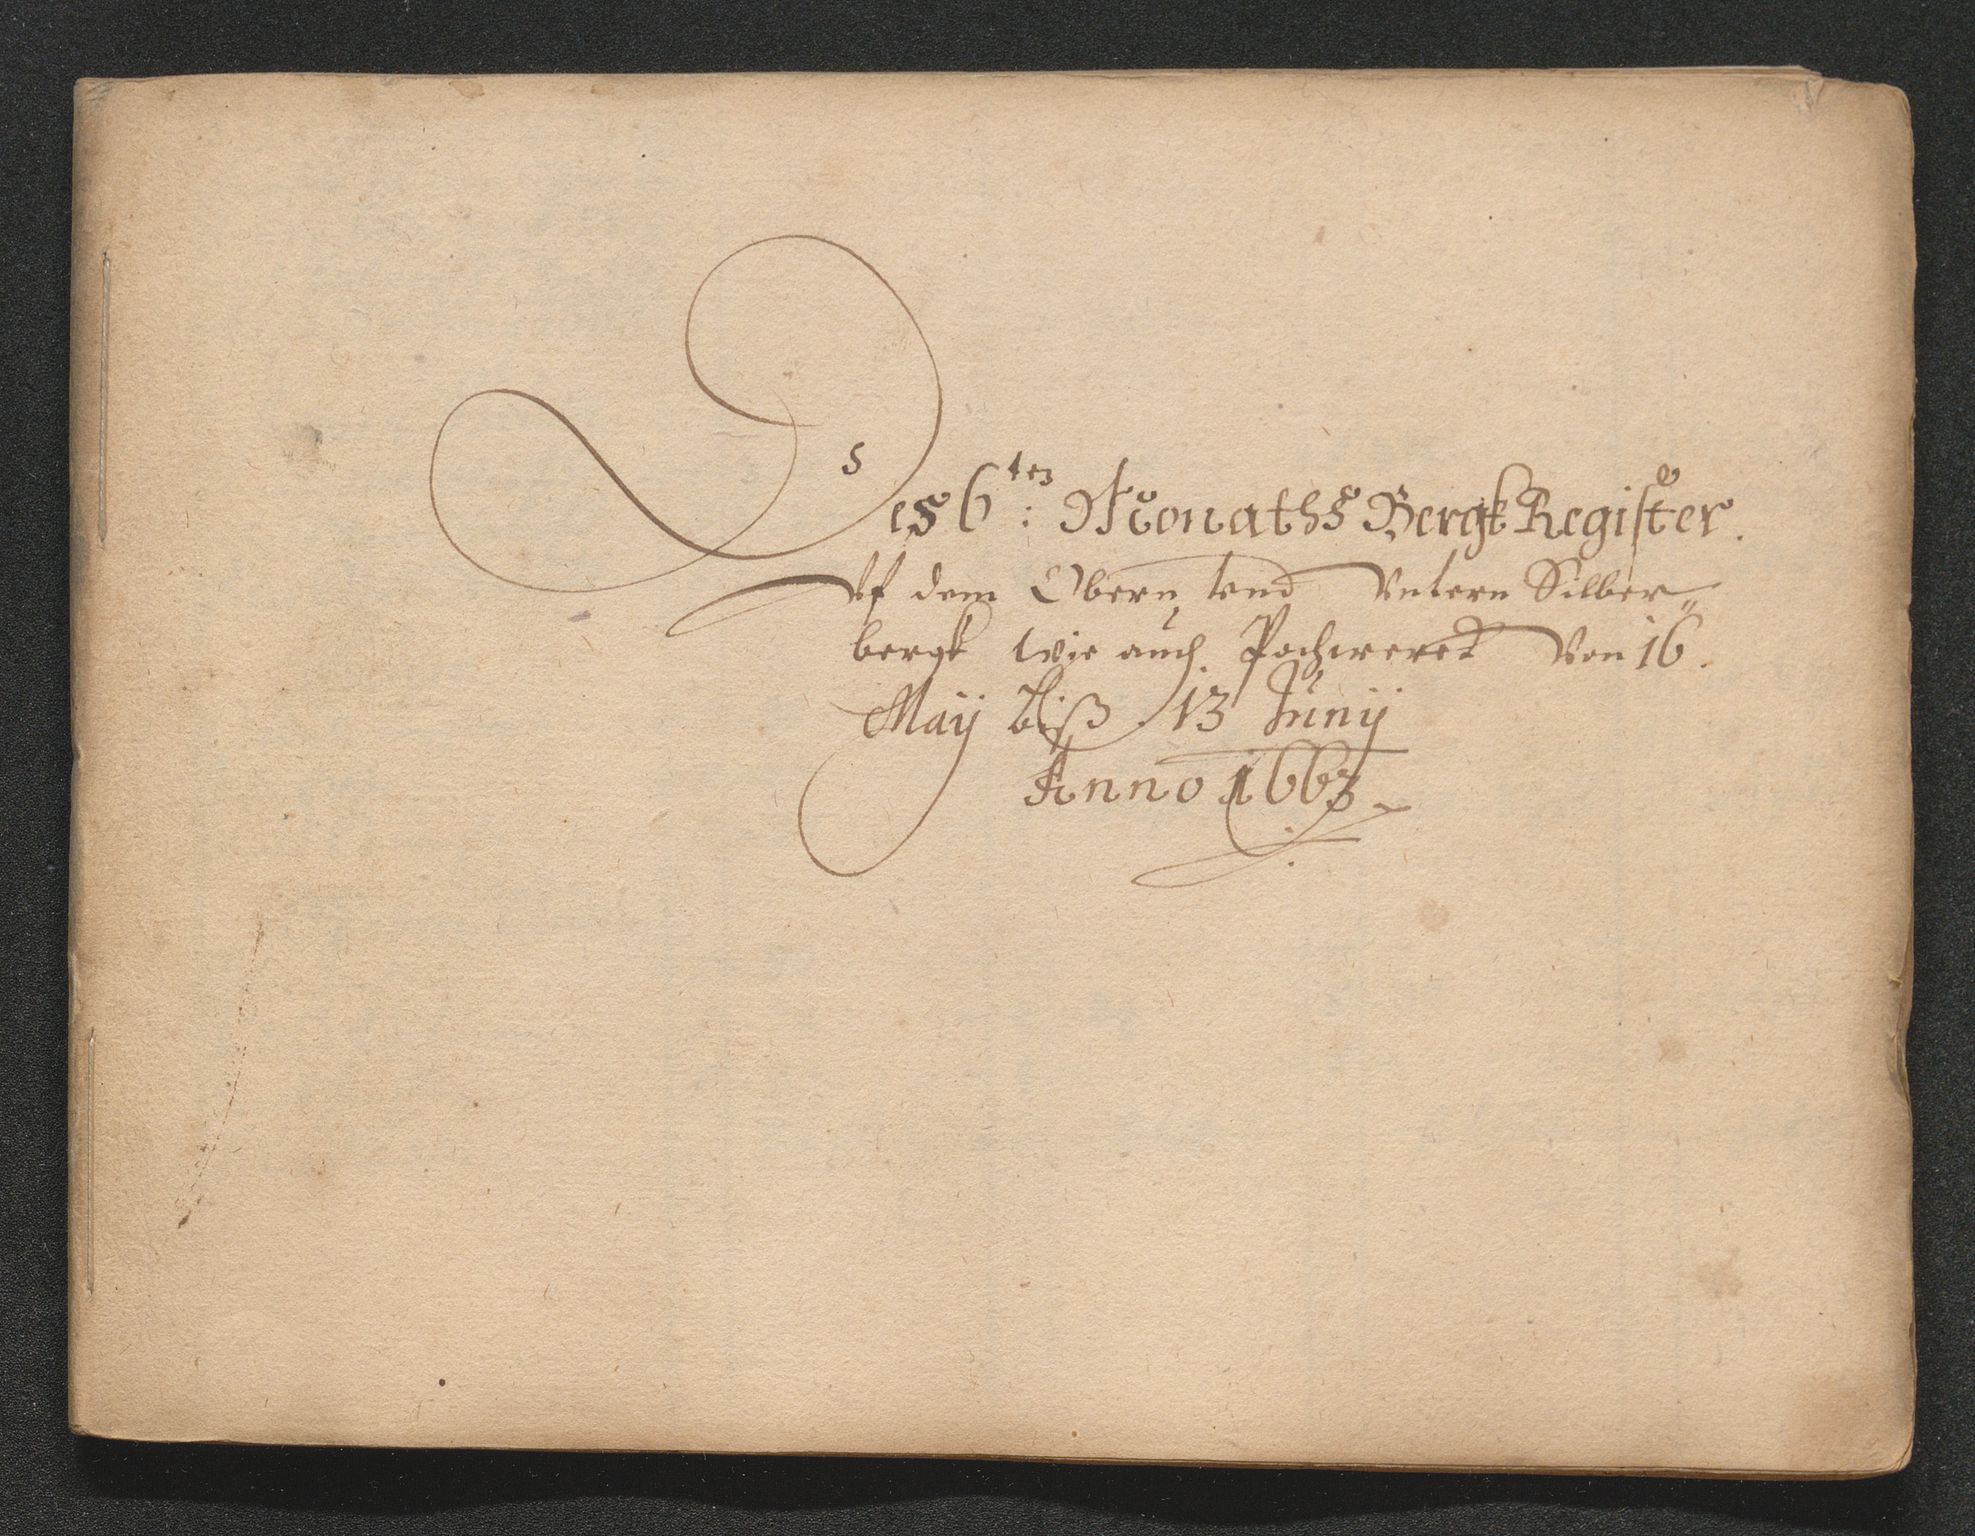 Des 6ten: Monaths Bergk Register.
Vf dem Obern vnd Vntern Silber„
bergk wie auch Pochwerck Von 16.
Maÿ biß 13 Junÿ
Anno 1663